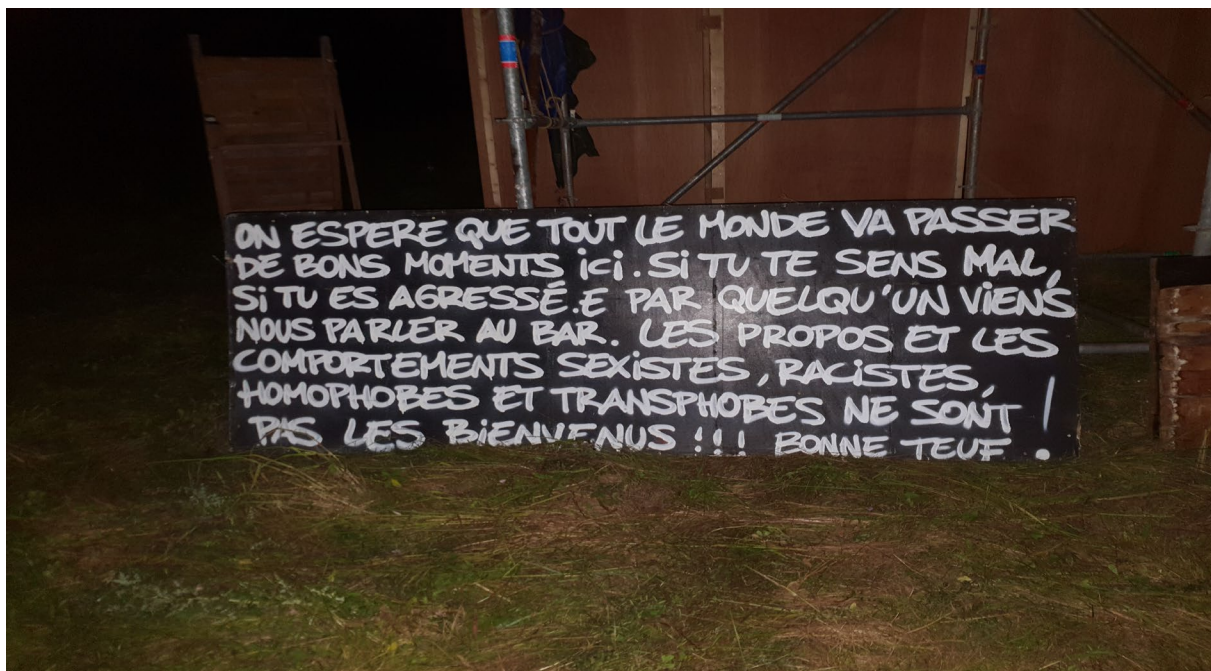 ON ESPERE QUE TOUT LE MONDE VA PASSER
DE BONS MOMENTS ici. Si TU TE SENS MAL,
Si TU ES AGRESSÉ.E PAR QUELQU'UN ViENS
NOUS PARLER AU BAR. LES PROPOS ET LES
COMPORTEMENTS SEXiSTES, RACiSTES,
HOMOPHOBES ET TRANSPHOBES NE SONT
PAS LES BiENVENUS !!! BONNE TEUF !